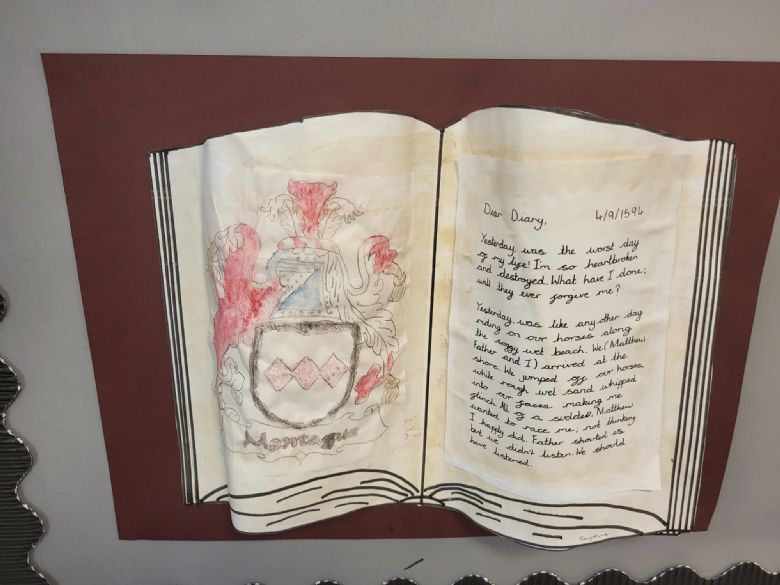 Montague
Dear Diary, 4/9/1594
Yesterday, was the worst day
of my life! I'm so heartbroken
and destroyed. What have I done;
will they ever forgive me?
Yesterday, was like any other day
riding on our horses along
the soggy wet beach. We (Matthew,
Father and I) arrived at the
shore. We jumped off our horses,
while rough wet sand whipped
into our faces making me
flinch. All of a sudden, Matthew
wanted to race me; not thinking
I happily did. Father shouted us
but we didn't listen. We should
have listened.
Sophie